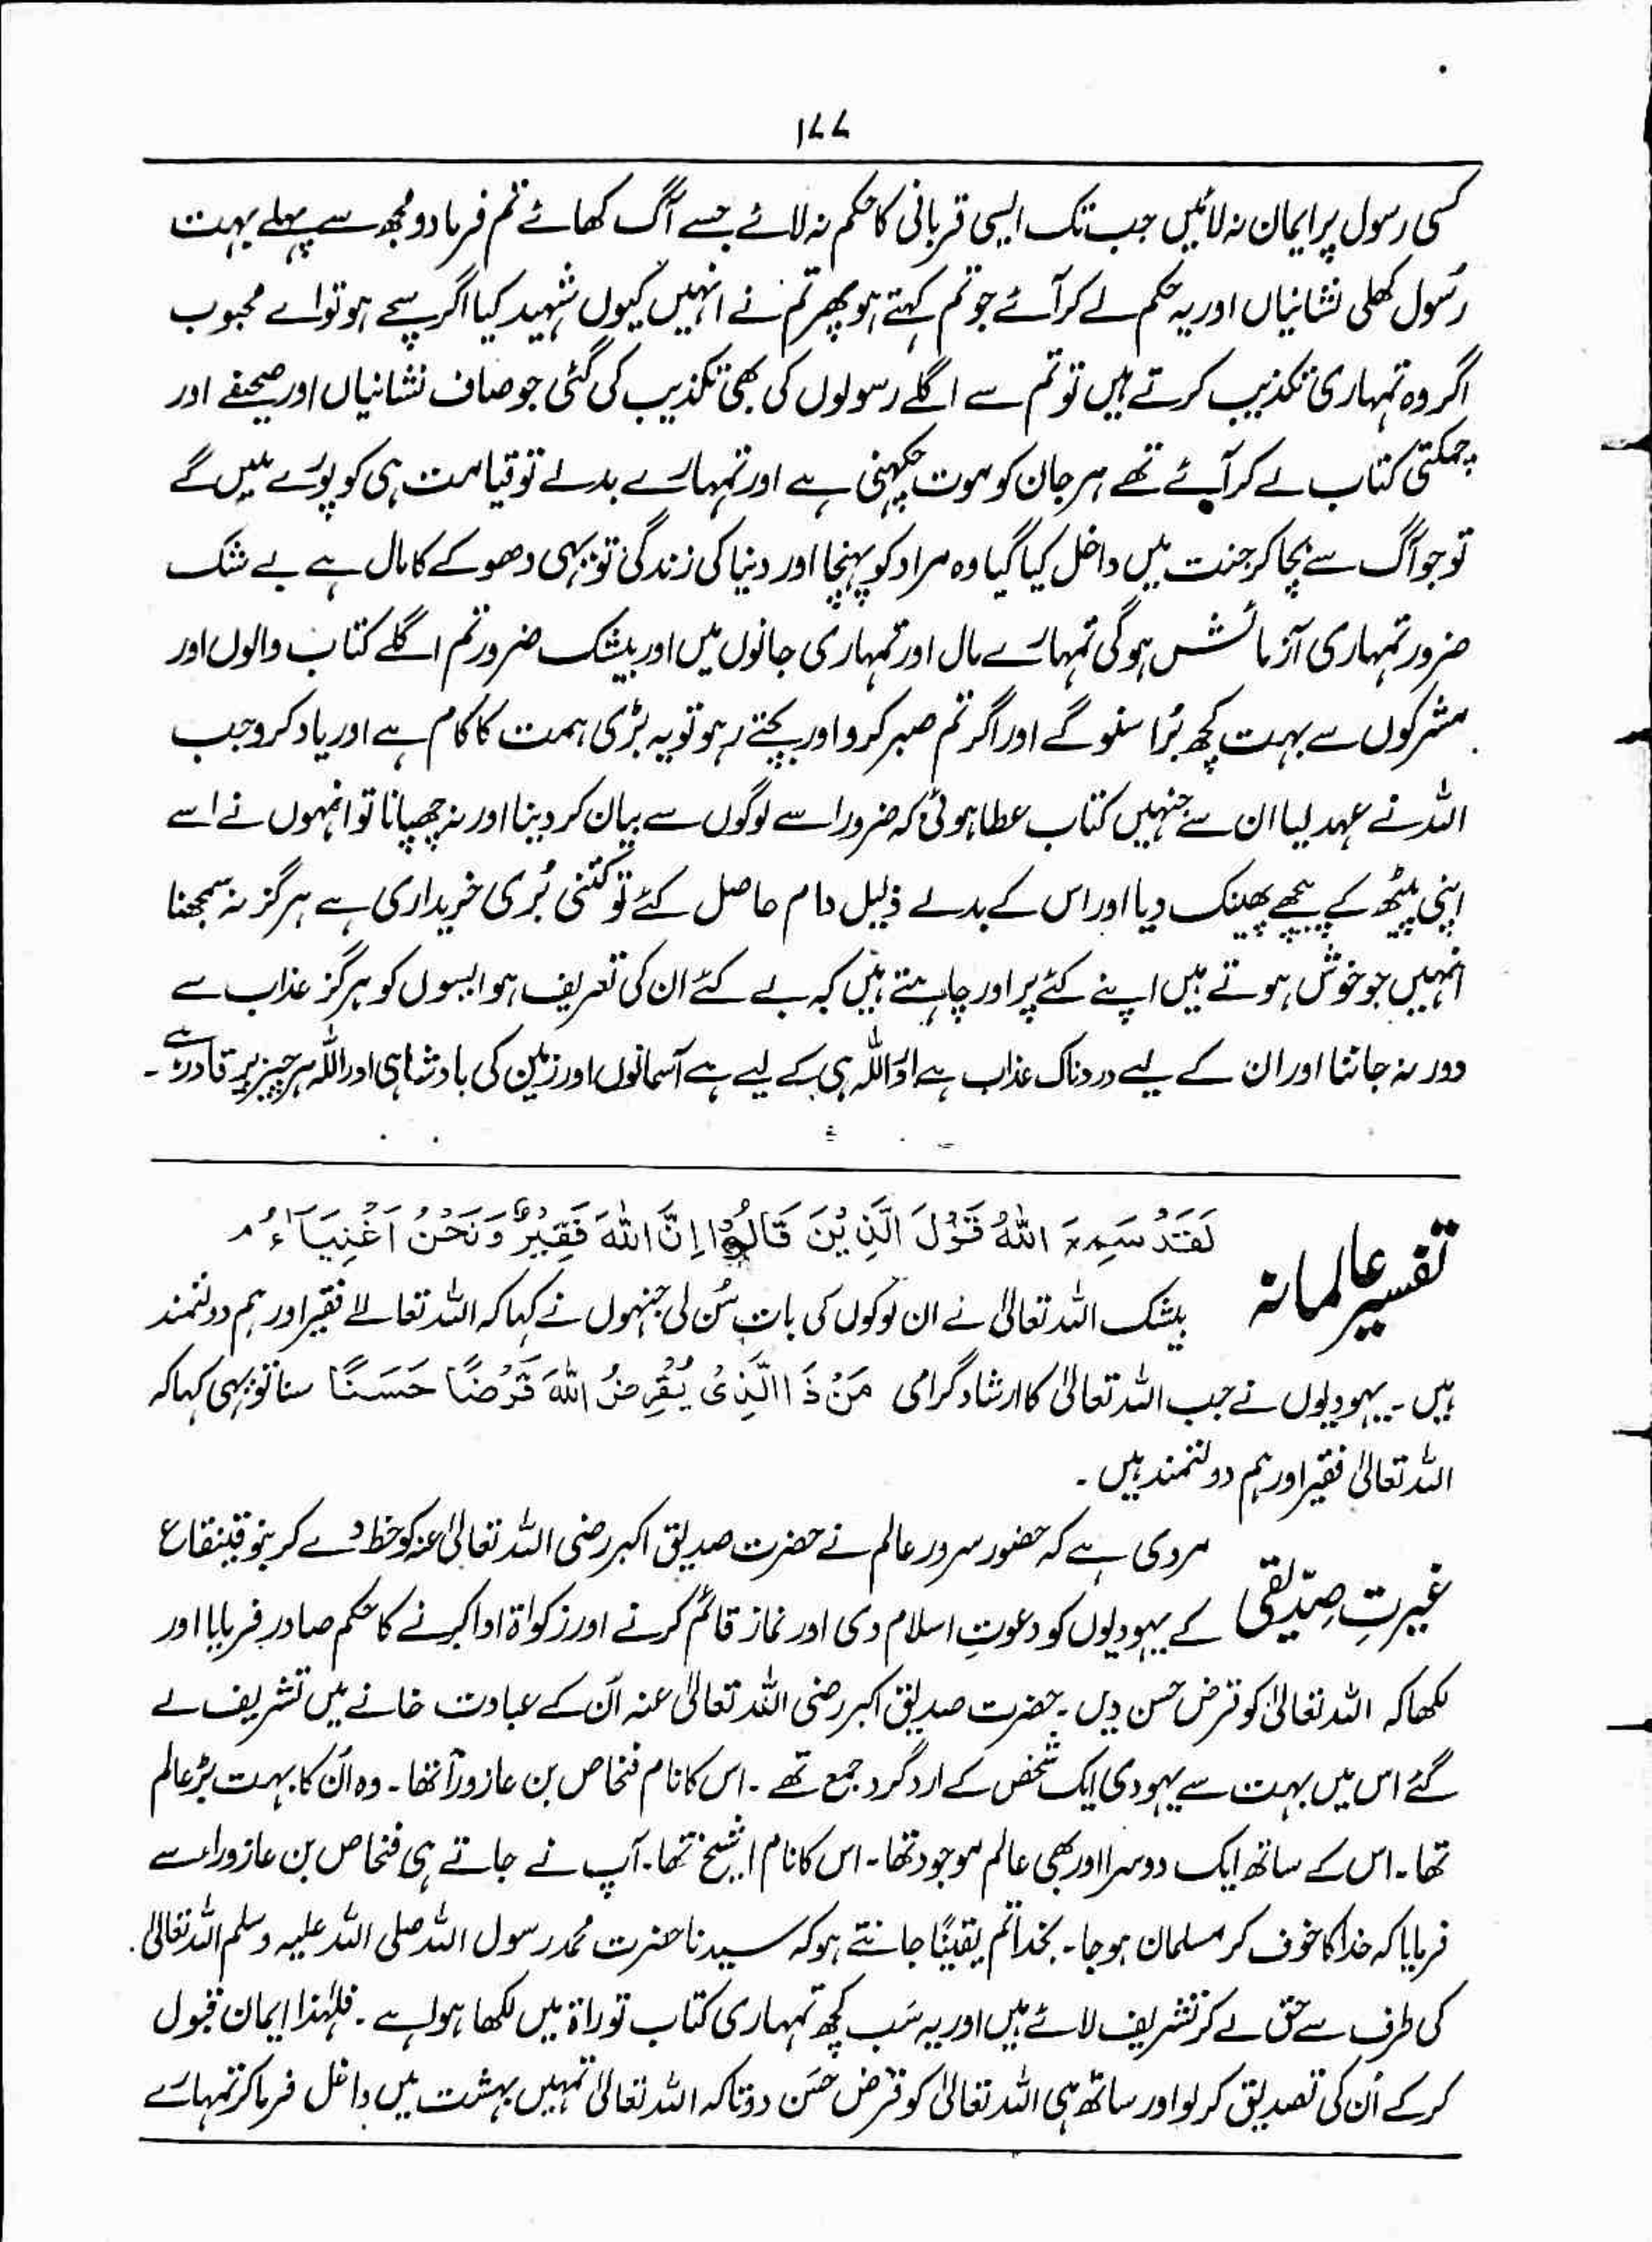 ۱۷۷
کسی رسول پر ایمان نہ لائیں جب تک ایسی قربانی کا حکم نہ لائے جسے آگ کھائے تم فرما دو مجھ سے پہلے بہت
رسُول کھلی نشانیاں اور یہ حکم لے کر آئے جو تم کہتے ہو پھر تم نے انہیں کیوں شہید کیا اگر سچے ہو تو اے محبوب
اگر وہ تمہاری تکذیب کرتے ہیں تو تم سے اگلے رسولوں کی بھی تکذیب کی گئی جو صاف نشانیاں اور صحیفے اور
چمکتی کتاب لے کر آئے تھے ہر جان کو موت چکھنی ہے اور تمہارے بدلے تو قیامت ہی کو پورے ملیں گے
تو جو آگ سے بچا کر جنت میں داخل کیا گیا وہ مراد کو پہنچا اور دنیا کی زندگی تو یہی دھوکے کا مال ہے بے شک
ضرور تمہاری آزمائش ہوگی تمہارے مال اور تمہاری جانوں میں اور بیشک ضرور تم اگلے کتاب والوں اور
مشرکوں سے بہت کچھ بُرا سنو گے اور اگر تم صبر کرو اور بچتے رہو تو یہ بڑی ہمت کا کام ہے اور یاد کرو جب
اللہ نے عہد لیا ان سے جنہیں کتاب عطا ہوئی کہ ضرور اسے لوگوں سے بیان کر دینا اور نہ چھپانا تو انہوں نے اسے
اپنی پیٹھ کے پیچھے پھینک دیا اور اس کے بدلے ذلیل دام حاصل کئے تو کتنی بُری خریداری ہے ہرگز نہ سمجھنا
انہیں جو خوش ہوتے ہیں اپنے کئے پر اور چاہتے ہیں کہ بے کئے ان کی تعریف ہو ایسوں کو ہرگز عذاب سے
دور نہ جاننا اور ان کے لیے دردناک عذاب ہے اور اللہ ہی کے لیے ہے آسمانوں اور زمین کی بادشاہی اور اللہ ہر چیز پر قادر ہے۔
تفسیر عالمانہ لَقَدْ سَمِعَ اللّٰہُ قَوْلَ الَّذِیْنَ قَالُوْٓا اِنَّ اللّٰہَ فَقِیْرٌ وَّ نَحْنُ اَغْنِیَآءُ م
بیشک اللہ تعالیٰ نے ان لوگوں کی بات سُن لی جنہوں نے کہا کہ اللہ تعالےٰ فقیر اور ہم دولتمند
ہیں۔ یہودیوں نے جب اللہ تعالیٰ کا ارشاد گرامی مَنْ ذَا الَّذِیْ یُقْرِضُ اللّٰہَ قَرْضًا حَسَنًا سنا تو یہی کہا کہ
اللہ تعالیٰ فقیر اور ہم دولتمند ہیں۔
غیرتِ صِدّیقی مروی ہے کہ حضور سرور عالم نے حضرت صدیق اکبر رضی اللہ تعالیٰ عنہ کو خط دے کر بنو قینقاع
کے یہودیوں کو دعوتِ اسلام دی اور نماز قائم کرنے اور زکواۃ ادا کرنے کا حکم صادر فرمایا اور
لکھا کہ اللہ تعالیٰ کو قرض حسن دیں۔ حضرت صدیق اکبر رضی اللہ تعالیٰ عنہ اُن کے عبادت خانے میں تشریف لے
گئے اس میں بہت سے یہودی ایک شخص کے ارد گرد جمع تھے۔ اس کا نام فنحاص بن عازورآ تھا۔ وہ اُن کا بہت بڑ عالم
تھا۔ اس کے ساتھ ایک دوسرا اور بھی عالم موجود تھا۔ اس کا نام اشیخ تھا۔ آپ نے جاتے ہی فنحاص بن عازورا سے
فرمایا کہ خدا کا خوف کر مسلمان ہو جا۔ بخدا تم یقینًا جانتے ہو کہ سیدنا حضرت محمد رسول اللہ صلی اللہ علیہ وسلم اللہ تعالیٰ
کی طرف سے حق لے کر تشریف لائے ہیں اور یہ سَب کچھ تمہاری کتاب توراۃ میں لکھا ہوا ہے۔ فلہٰذا ایمان قبول
کر کے اُن کی تصدیق کر لو اور ساتھ ہی اللہ تعالیٰ کو قرض حسَن دو تاکہ اللہ تعالیٰ تمہیں بہشت میں داخل فرما کر تمہارے